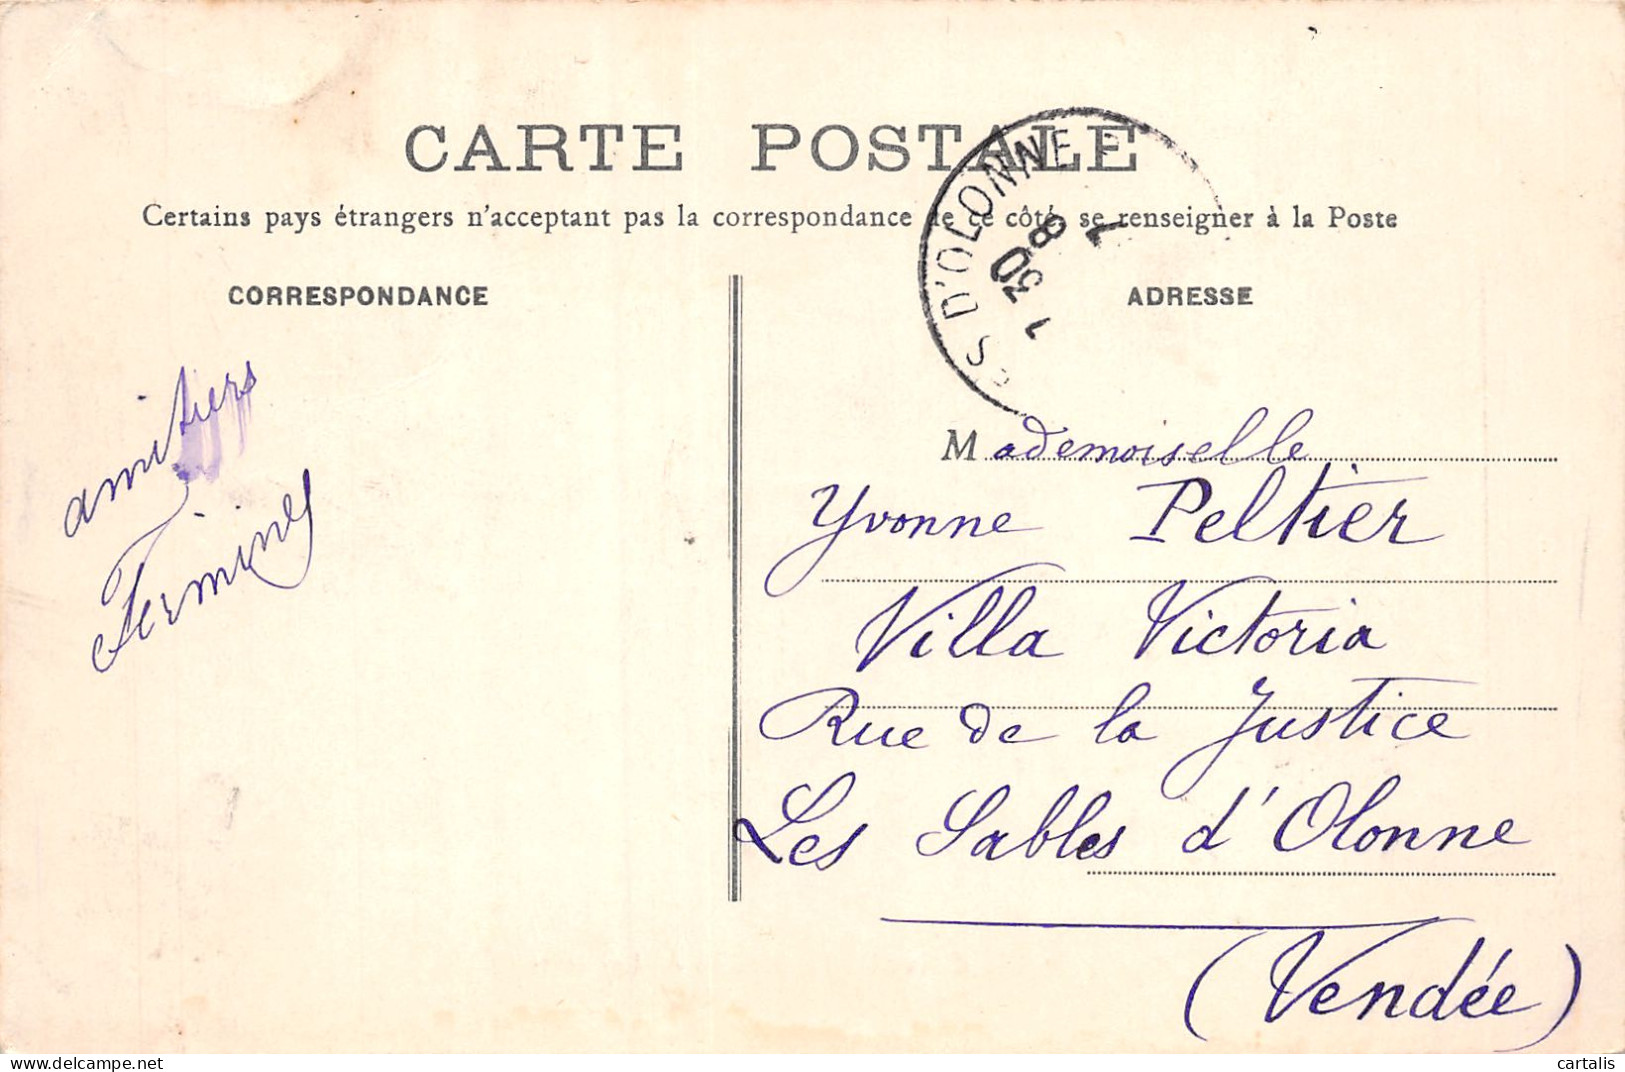 CARTE POSTALE
Certains pays étrangers n'acceptant pas la correspondance de ce côté, se renseigner à la Poste
CORRESPONDANCE
ADRESSE
ES D'OLONNE
30-8
amitiers
Mademoiselle
Yvonne Peltier
Villa Victoria
Rue de la Justice
Les Sables d'Olonne
(Vendée)
cartalis